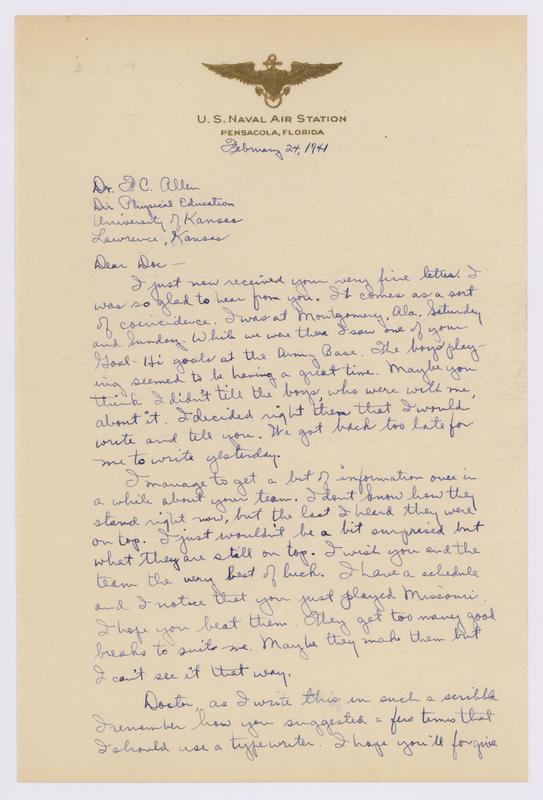 U. S. NAVAL AIR STATION
PENSACOLA, FLORIDA
February 24, 1941
Dr. F. C. Allen
Dir Physical Education
University of Kansas
Lawrence, Kansas
Dear Doc —
I just now received your very fine letter. I
was so glad to hear from you. It comes as a sort
of coincidence. I was at Montgomery, Ala, Saturday
and Sunday. While we were there I saw one of your
Goal-Hi goals at the Army Base. The boys play-
ing seemed to be having a great time. Maybe you
think I didn't tell the boys, who were with me,
about it. I decided right then that I would
write and tell you. We got back too late for
me to write yesterday.
I manage to get a bit of information once in
a while about your team. I don't know how they
stand right now, but the last I heard they were
on top. I just wouldn't be a bit surprised but
what they are still on top. I wish you and the
team the very best of luck. I have a schedule
and I notice that you just played Missouri.
I hope you beat them. They get too many good
breaks to suit me. Maybe they make them but
I can't see it that way.
Doctor, as I write this in such a scribble
I remember how you suggested a few times that
I should use a typewriter. I hope you'll forgive